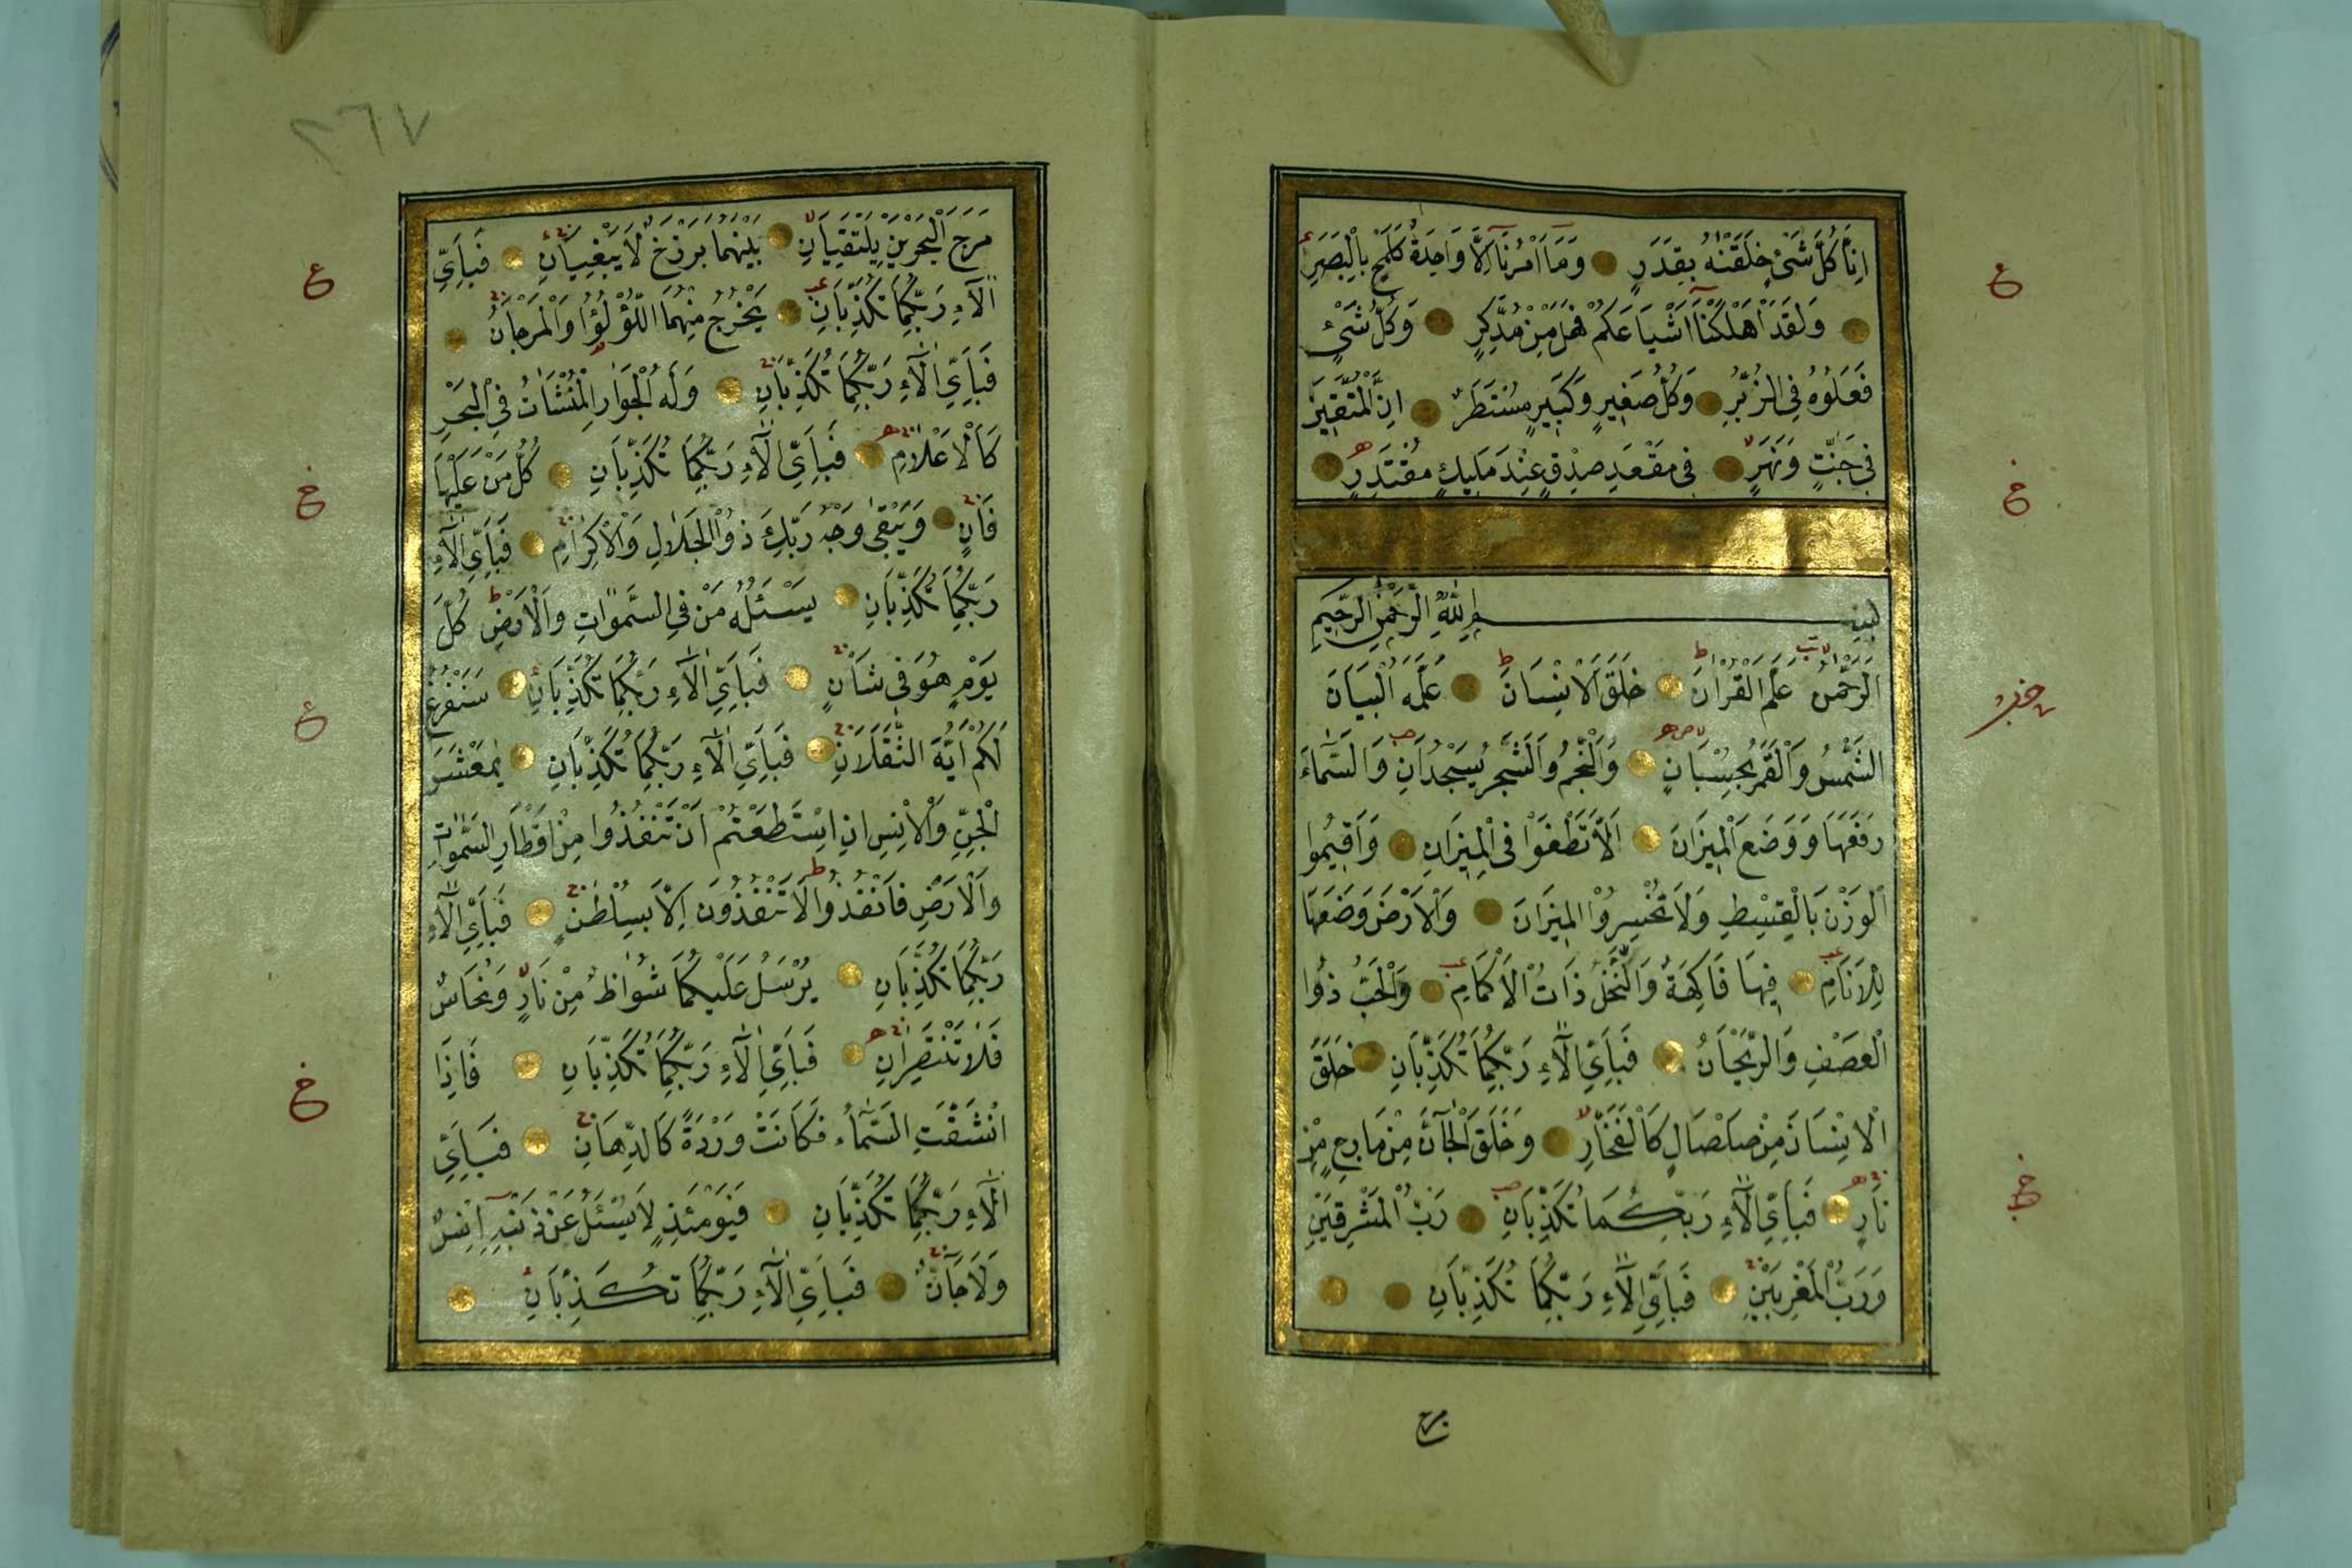 اِنَّا كُلَّ شَيْءٍ خَلَقْنٰهُ بِقَدَرٍ وَمَا اَمْرُنَا اِلَّا وَاحِدَةٌ كَلَمْحٍ بِالْبَصَرِ
وَلَقَدْ اَهْلَكْنَا اَشْيَاعَكُمْ فَهَلْ مِنْ مُدَّكِرٍ وَكُلُّ شَيْءٍ
فَعَلُوهُ فِي الزُّبُرِ وَكُلُّ صَغِيرٍ وَكَبِيرٍ مُسْتَطَرٌ اِنَّ الْمُتَّقِينَ
فِي جَنّٰتٍ وَنَهَرٍ فِي مَقْعَدِ صِدْقٍ عِنْدَ مَلِيكٍ مُقْتَدِرٍ
بِسْمِ اللّٰهِ الرَّحْمٰنِ الرَّحِيمِ
اَلرَّحْمٰنُ عَلَّمَ الْقُرْاٰنَ خَلَقَ الْاِنْسَانَ عَلَّمَهُ الْبَيَانَ
الشَّمْسُ وَالْقَمَرُ بِحُسْبَانٍ وَالنَّجْمُ وَالشَّجَرُ يَسْجُدَانِ وَالسَّمَاءَ
رَفَعَهَا وَوَضَعَ الْمِيزَانَ اَلَّا تَطْغَوْا فِي الْمِيزَانِ وَاَقِيمُوا
الْوَزْنَ بِالْقِسْطِ وَلَا تُخْسِرُوا الْمِيزَانَ وَالْاَرْضَ وَضَعَهَا
لِلْاَنَامِ فِيهَا فَاكِهَةٌ وَالنَّخْلُ ذَاتُ الْاَكْمَامِ وَالْحَبُّ ذُوا
الْعَصْفِ وَالرَّيْحَانُ فَبِاَيِّ اٰلَاءِ رَبِّكُمَا تُكَذِّبَانِ خَلَقَ
الْاِنْسَانَ مِنْ صَلْصَالٍ كَالْفَخَّارِ وَخَلَقَ الْجَانَّ مِنْ مَارِجٍ مِنْ
نَارٍ فَبِاَيِّ اٰلَاءِ رَبِّكُمَا تُكَذِّبَانِ رَبُّ الْمَشْرِقَيْنِ
وَرَبُّ الْمَغْرِبَيْنِ فَبِاَيِّ اٰلَاءِ رَبِّكُمَا تُكَذِّبَانِ
مرج
٢٦٧
مَرَجَ الْبَحْرَيْنِ يَلْتَقِيَانِ بَيْنَهُمَا بَرْزَخٌ لَا يَبْغِيَانِ فَبِاَيِّ
اٰلَاءِ رَبِّكُمَا تُكَذِّبَانِ يَخْرُجُ مِنْهُمَا اللُّؤْلُؤُا وَالْمَرْجَانُ
فَبِاَيِّ اٰلَاءِ رَبِّكُمَا تُكَذِّبَانِ وَلَهُ الْجَوَارِ الْمُنْشَاٰتُ فِي الْبَحْرِ
كَالْاَعْلَامِ فَبِاَيِّ اٰلَاءِ رَبِّكُمَا تُكَذِّبَانِ كُلُّ مَنْ عَلَيْهَا
فَانٍ وَيَبْقٰى وَجْهُ رَبِّكَ ذُو الْجَلَالِ وَالْاِكْرَامِ فَبِاَيِّ اٰلَاءِ
رَبِّكُمَا تُكَذِّبَانِ يَسْئَلُهُ مَنْ فِي السَّمٰوَاتِ وَالْاَرْضِ كُلَّ
يَوْمٍ هُوَ فِي شَاْنٍ فَبِاَيِّ اٰلَاءِ رَبِّكُمَا تُكَذِّبَانِ سَنَفْرُغُ
لَكُمْ اَيُّهَ الثَّقَلَانِ فَبِاَيِّ اٰلَاءِ رَبِّكُمَا تُكَذِّبَانِ يٰمَعْشَرَ
الْجِنِّ وَالْاِنْسِ اِنِ اسْتَطَعْتُمْ اَنْ تَنْفُذُوا مِنْ اَقْطَارِ السَّمٰوَاتِ
وَالْاَرْضِ فَانْفُذُوا لَا تَنْفُذُونَ اِلَّا بِسُلْطٰنٍ فَبِاَيِّ اٰلَاءِ
رَبِّكُمَا تُكَذِّبَانِ يُرْسَلُ عَلَيْكُمَا شُوَاظٌ مِنْ نَارٍ وَنُحَاسٌ
فَلَا تَنْتَصِرَانِ فَبِاَيِّ اٰلَاءِ رَبِّكُمَا تُكَذِّبَانِ فَاِذَا
انْشَقَّتِ السَّمَاءُ فَكَانَتْ وَرْدَةً كَالدِّهَانِ فَبِاَيِّ
اٰلَاءِ رَبِّكُمَا تُكَذِّبَانِ فَيَوْمَئِذٍ لَا يُسْئَلُ عَنْ ذَنْبِهِ اِنْسٌ
وَلَا جَانٌّ فَبِاَيِّ اٰلَاءِ رَبِّكُمَا تُكَذِّبَانِ